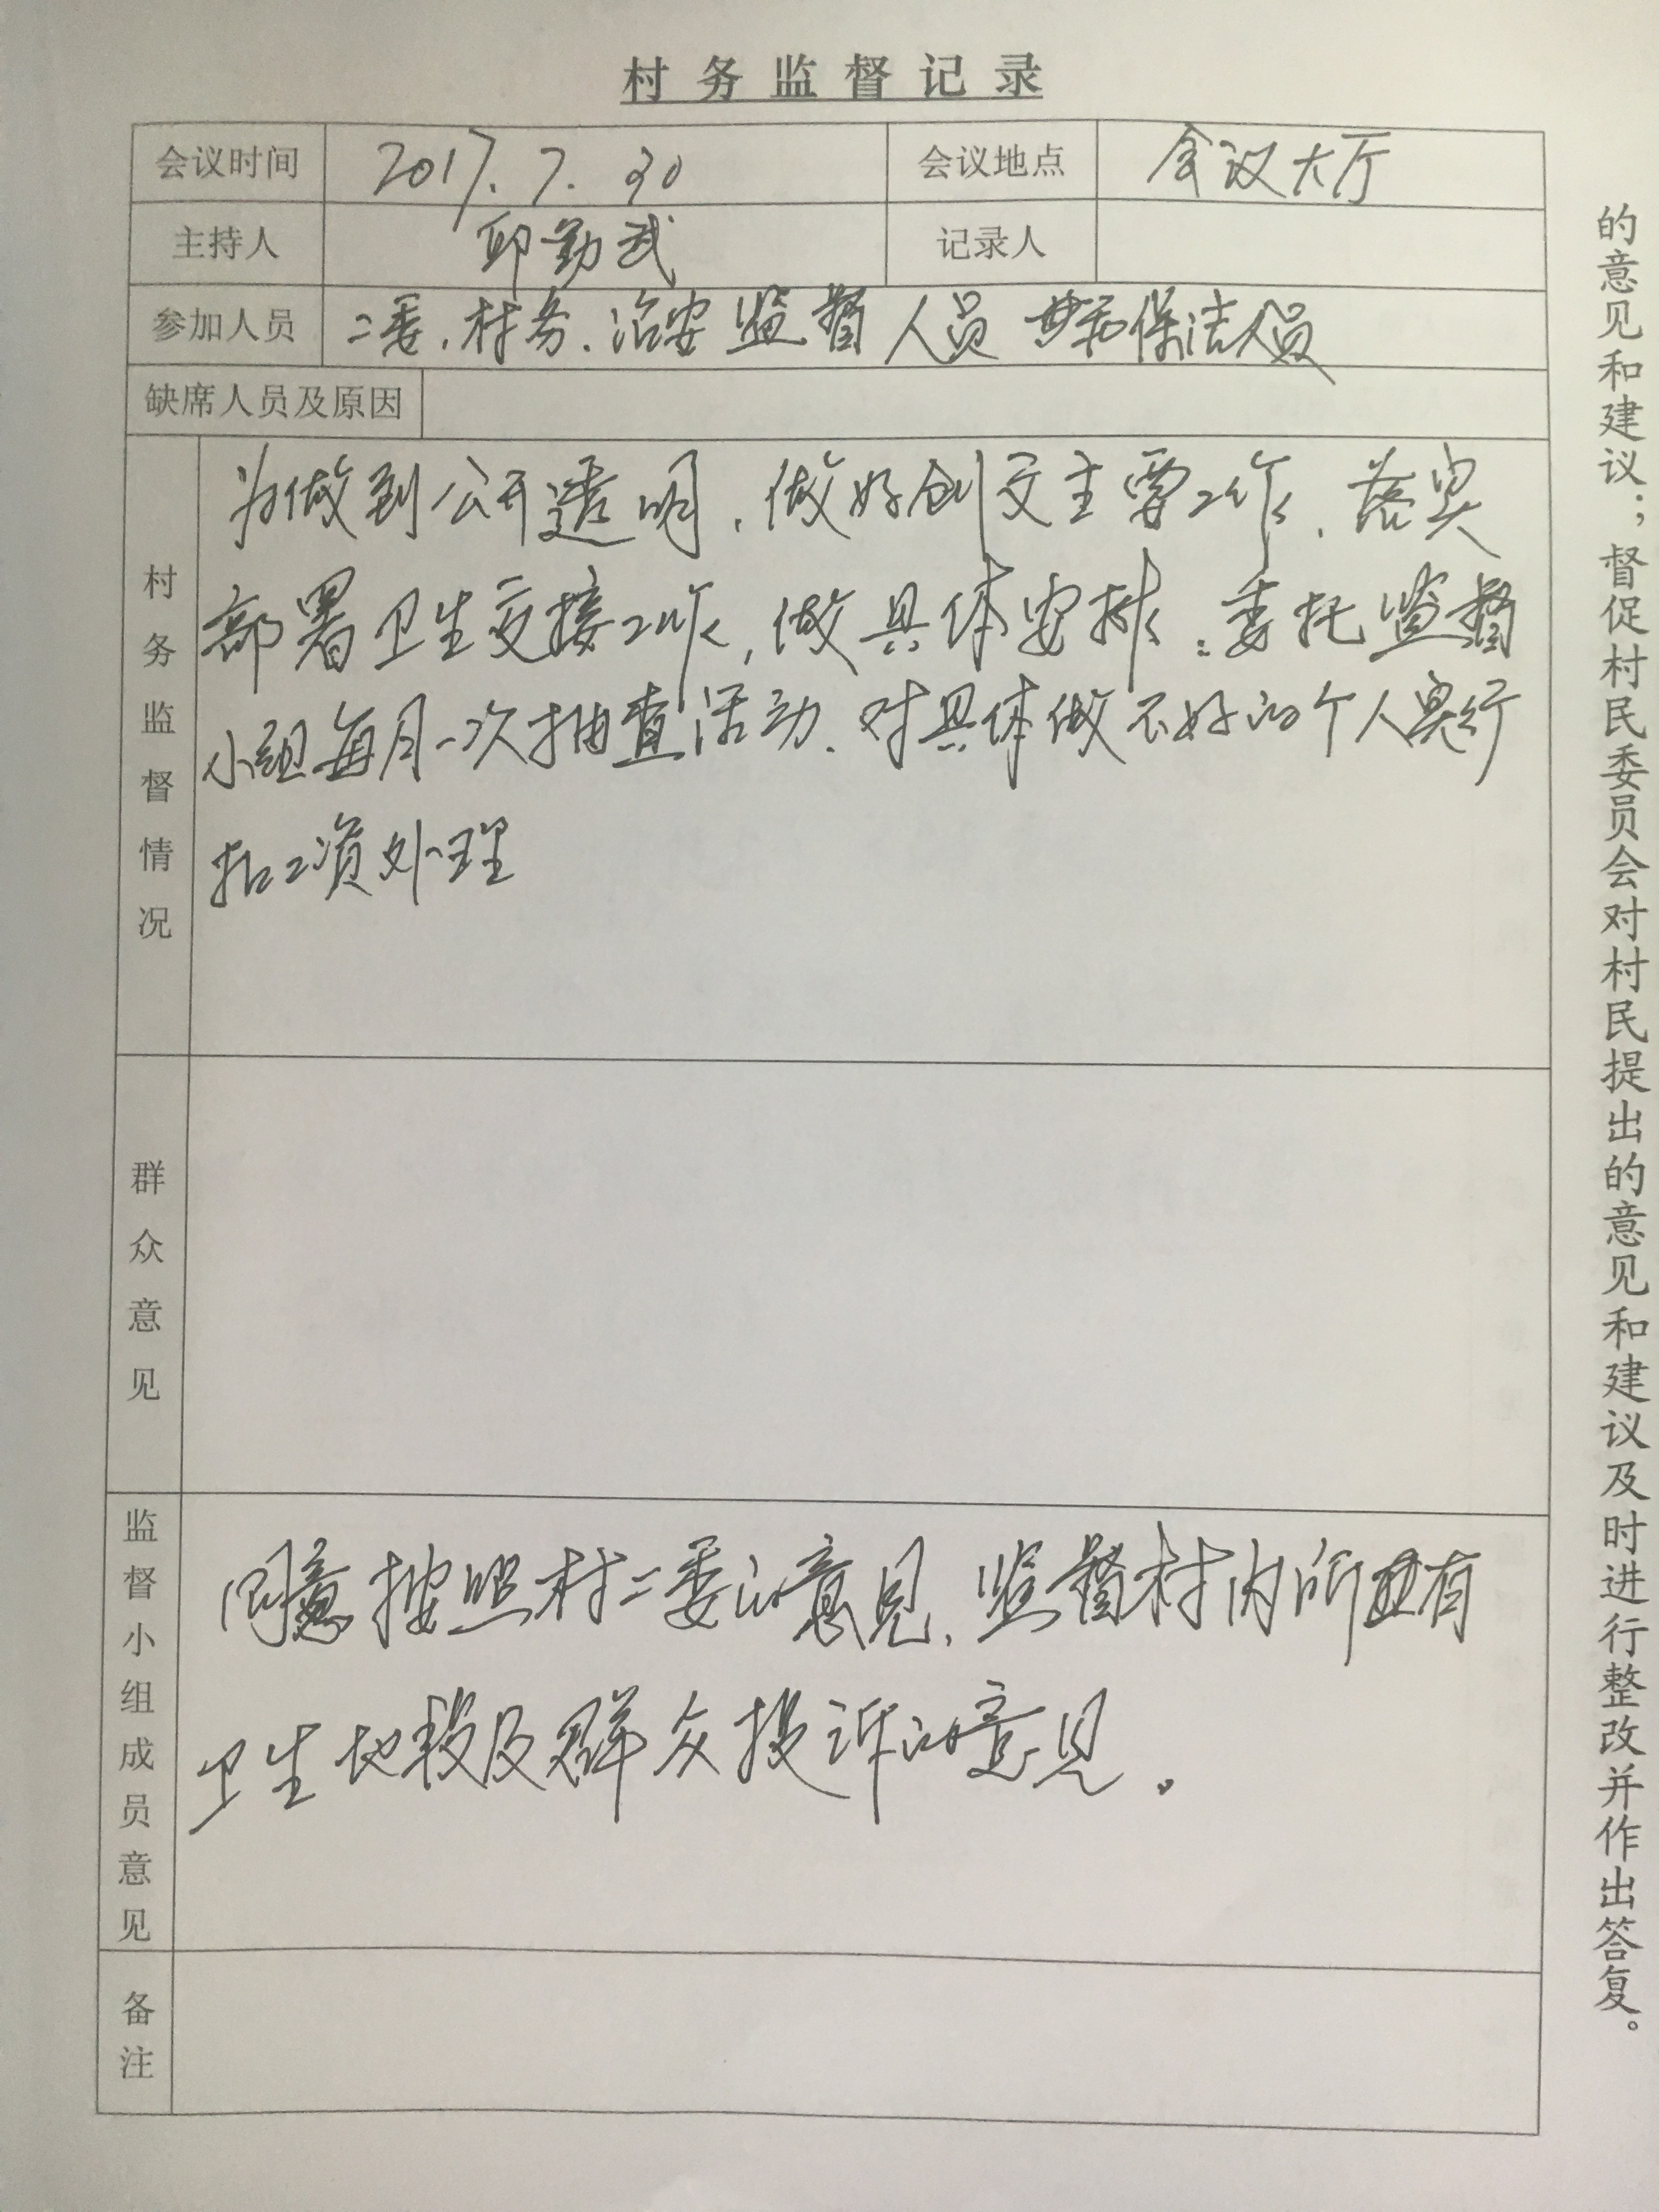 村务监督记录
会议时间 2017.7.30 会议地点 会议大厅
主持人 邱勤武 记录人
参加人员 二委、村务、治安监督人员 和保洁人员
缺席人员及原因
村务监督情况
为做到公开透明,做好创文主要工作,落实
部署卫生交接工作,做具体安排:委托监督
小组每月一次抽查活动,对具体做不好的个人实行
扣工资处理
群众意见
监督小组成员意见
同意按照村二委的意见,监督村内所有
卫生地段及群众投诉的意见。
备注
的意见和建议;督促村民委员会对村民提出的意见和建议及时进行整改并作出答复。